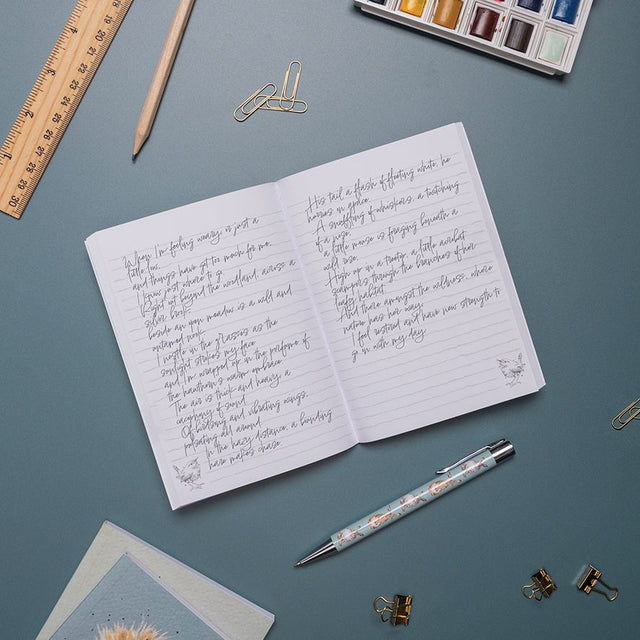 When I'm feeling weary, is just a
little low,
and things have got too much for me,
I know just where to go.
Right out beyond the woodland, across a
silver brook,
beside an open meadow is a wild and
untamed nook.
I nestle in the grasses as the
sunlight strokes my face
and I'm wrapped up in the perfume of
the hawthorn's warm embrace.
The air is thick and heavy, a
cacophony of sound
Of birdsong and vibrating wings,
pulsating all around.
In the hazy distance, a bounding
hare makes chase
His tail a flash of fleeting white, he
hovers in space.
A snuffling of whiskers, a twitching
of a nose,
a little mouse is foraging beneath a
wild rose.
High up in a treetop a little acrobat
scampers through the branches of her
leafy habitat.
And there amongst the wildness, where
nature has her way
I feel restored and have new strength to
go on with my day.
30
29
28
27
26
25
24
23
22
21
20